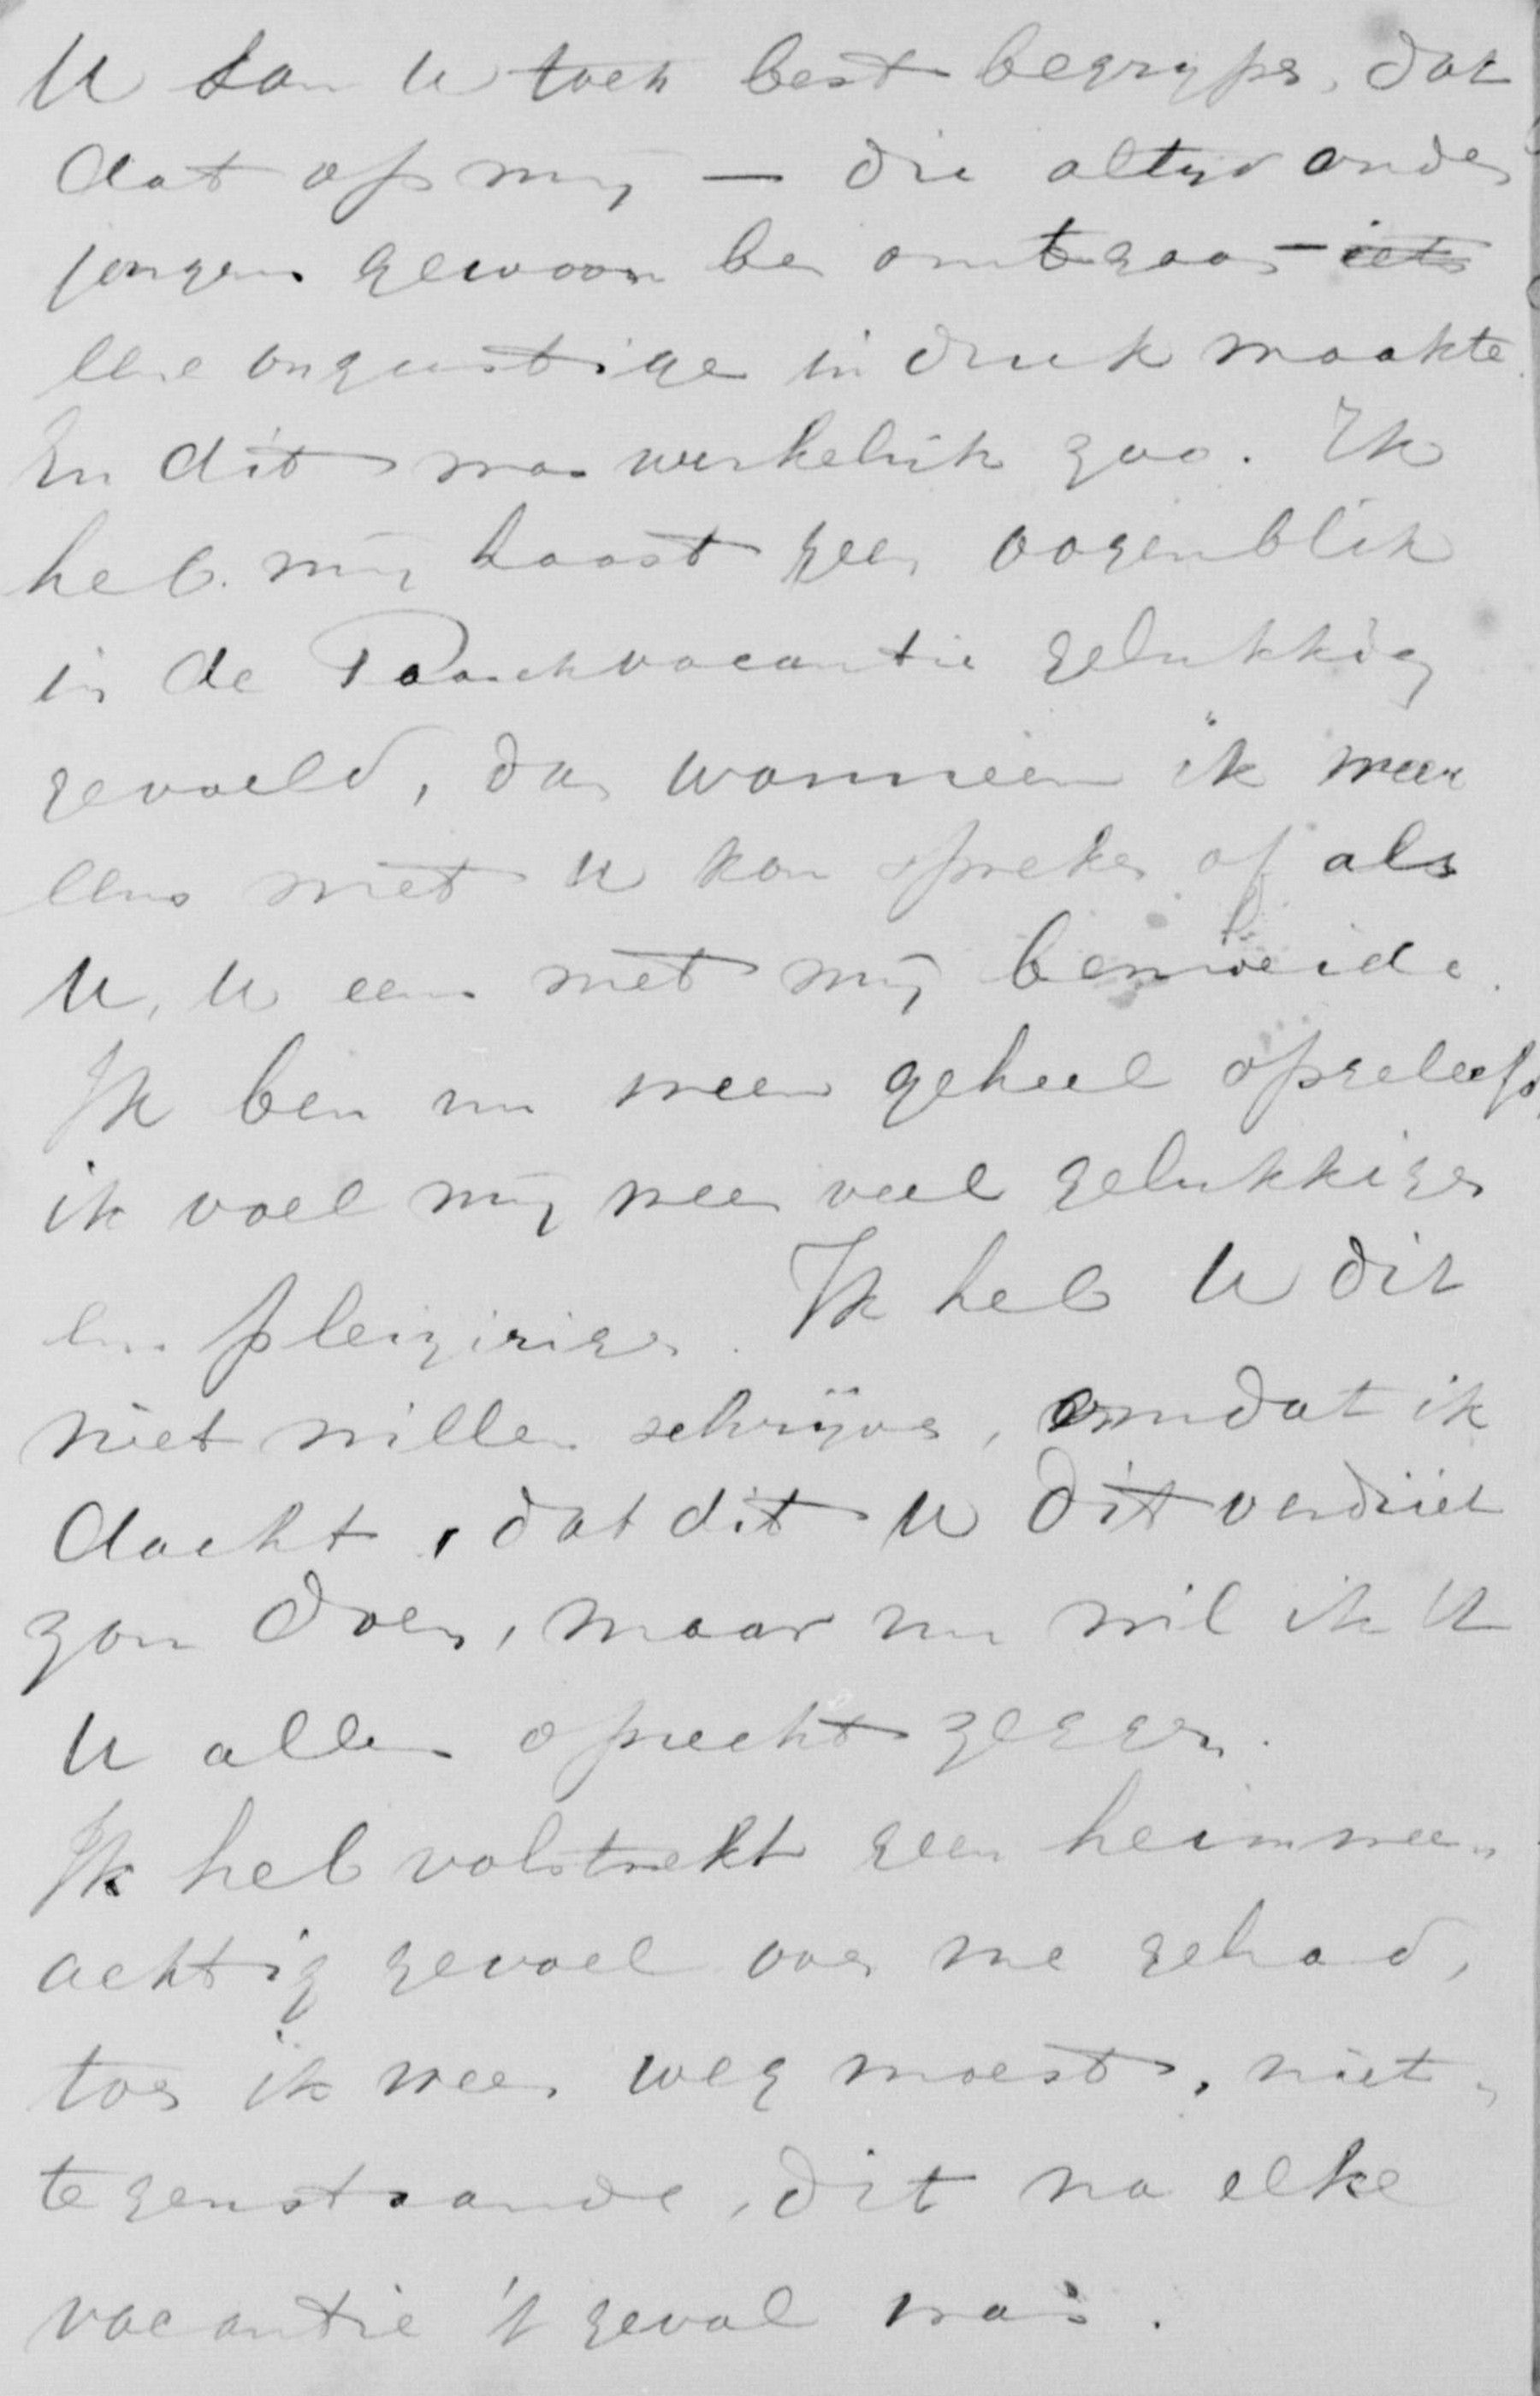 U kan u toch best begrypen, dat
dat op my — die altyd onder
jongens gewoon ben om te gaan — iets
eene ongunstige indruk maakte.
En dit was werkelijk zoo. Ik
heb mij haast geen oogenblik
in de Paaschvacantie gelukkig
gevoeld, dan wanneer ik weer
eens met u kon spreken of als
U, u eens met mij bemoeide.
Ik ben nu weer geheel opgeleefd,
ik voel mij weer veel gelukkiger
en pleizieriger. Ik heb U dit
niet willen schrijven, omdat ik
dacht, dat dit u dit verdriet
zou doen, maar nu wil ik U
u alles oprecht zeggen.
Ik heb volstrekt geen heimwee"
achtig gevoel over me gehad,
toen ik weer weg moest, niet"
tegenstaande, dit na elke
vacantie 't geval was.